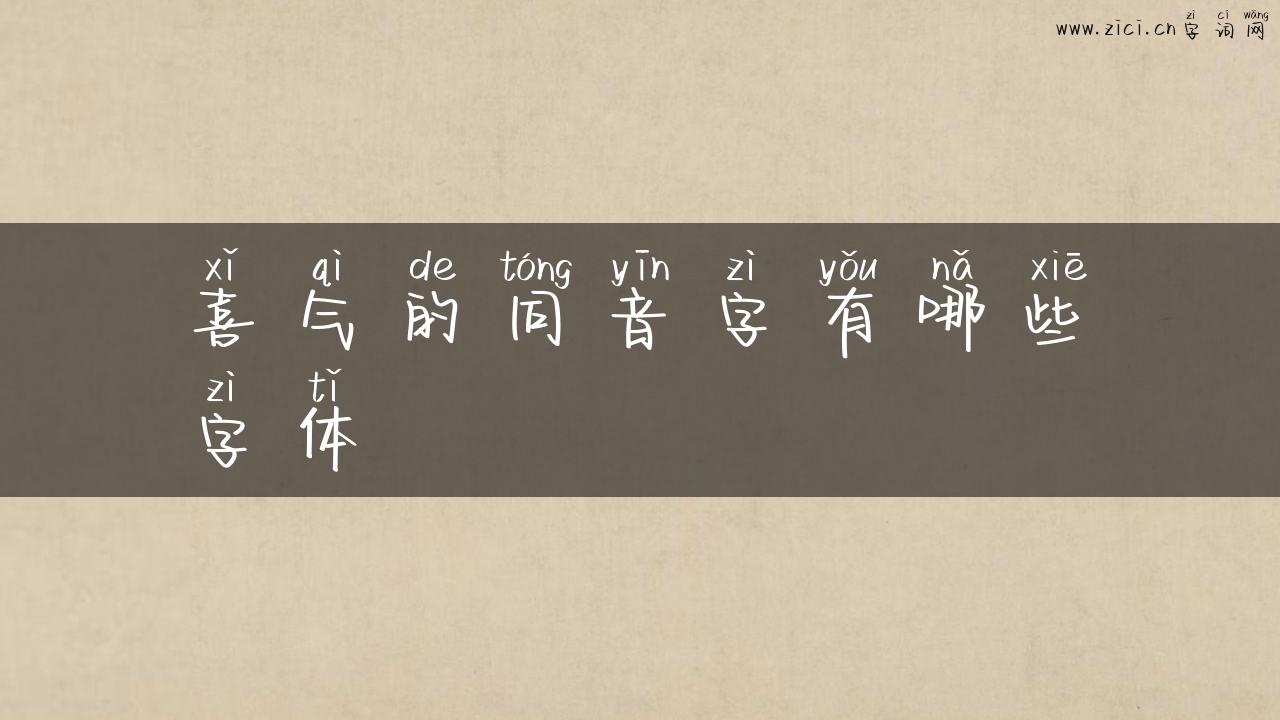 zì cí wǎng
www.zici.cn 字 词 网
xǐ qì de tóng yīn zì yǒu nǎ xiē
喜 气 的 同 音 字 有 哪 些
zì tǐ
字 体